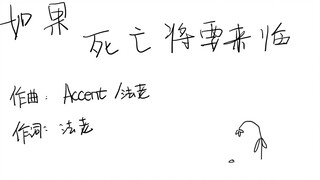 如果
死亡将要来临
作曲：Accent/法老
作词：法老